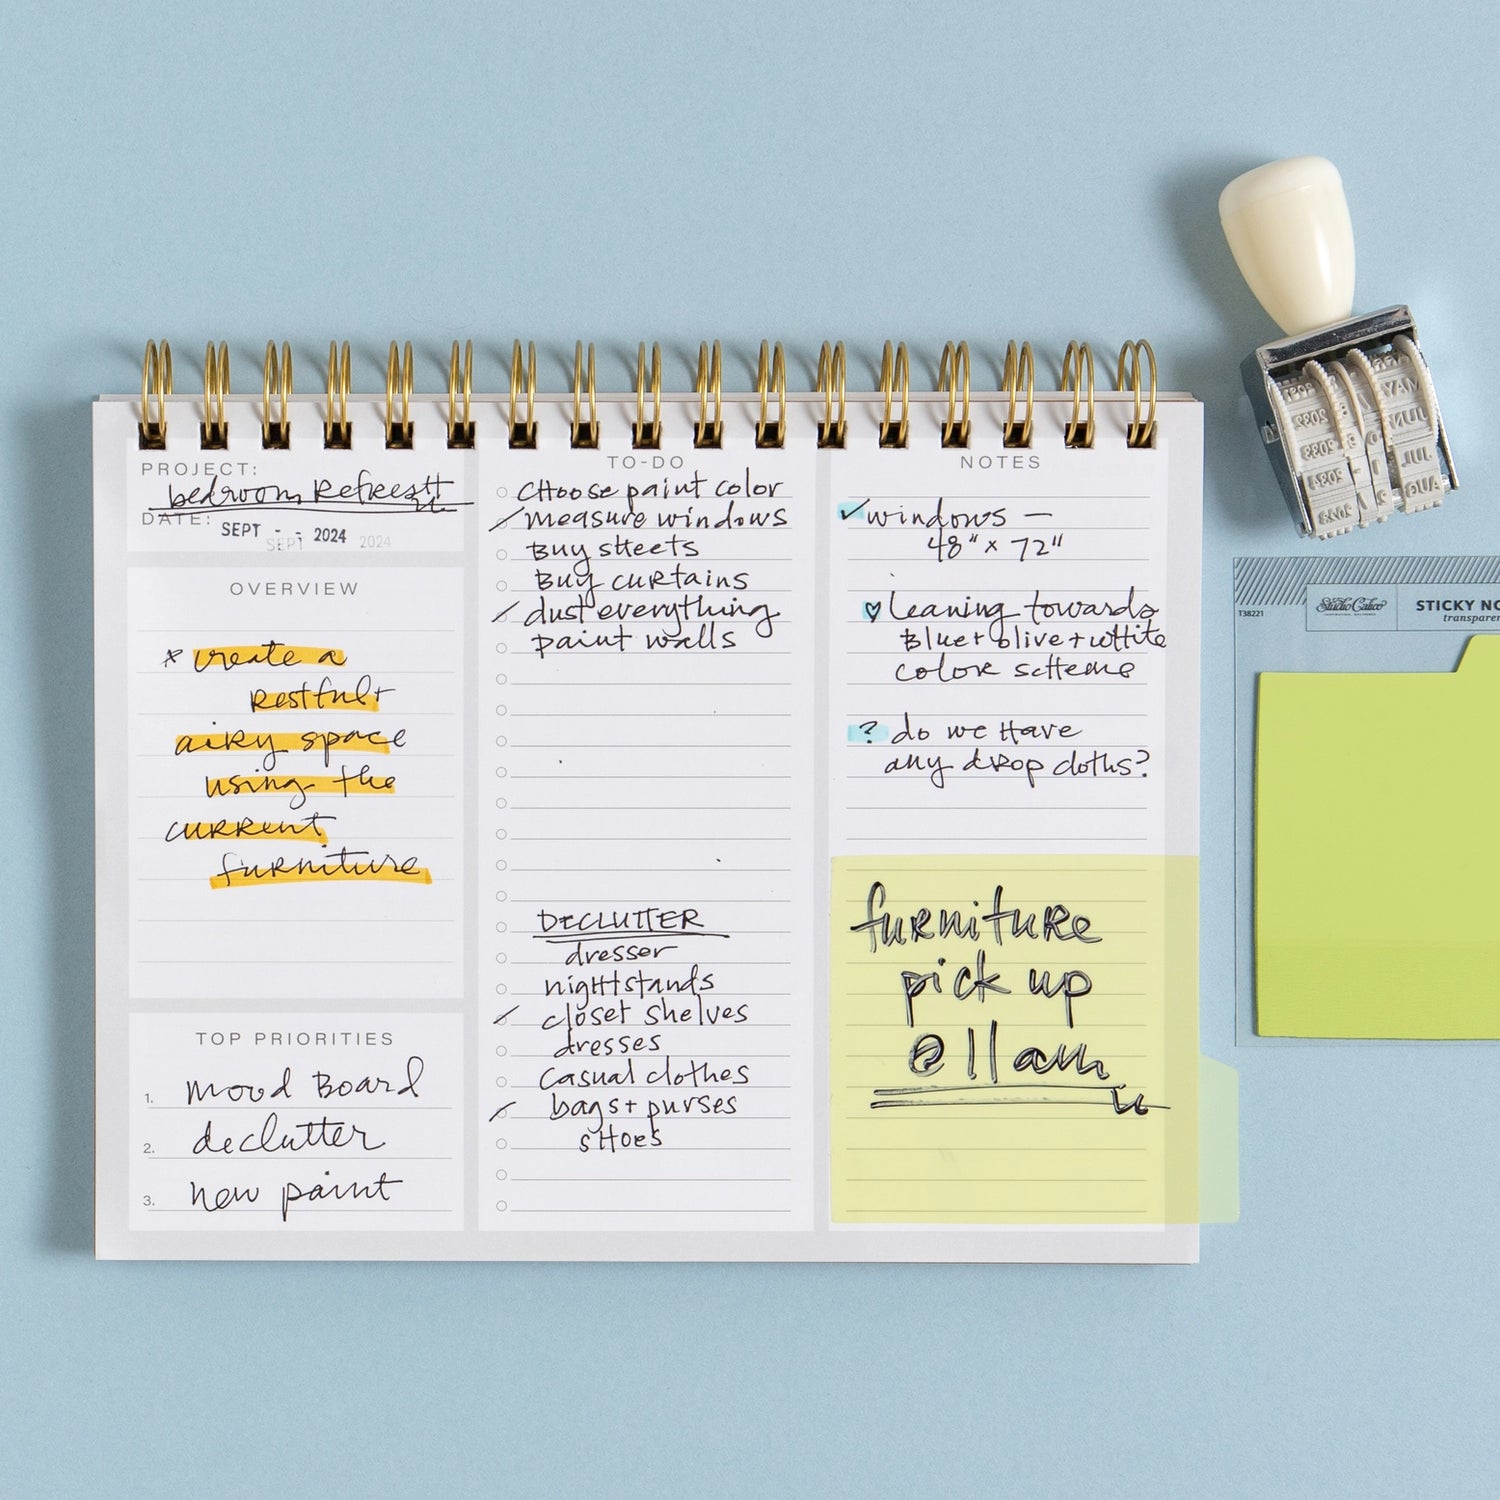 PROJECT:
bedroom Refresh
DATE: SEPT - - 2024
SEPT 2024
OVERVIEW
* create a
Restful +
airy space
using the
current
furniture
TOP PRIORITIES
1. Mood Board
2. declutter
3. new paint
TO-DO
Choose paint color
measure windows
Buy sheets
Buy curtains
dust everything
paint walls
DECLUTTER
dresser
nightstands
closet shelves
dresses
Casual clothes
bags + purses
shoes
NOTES
✓ windows —
48" x 72"
♡ leaning towards
Blue + olive + white
color scheme
? do we have
any drop cloths?
furniture
pick up
@ 11 am
T38221
Studio Calico
STICKY NO
transparen
MAY
JUN
JUL
AUG
2032
2033
2034